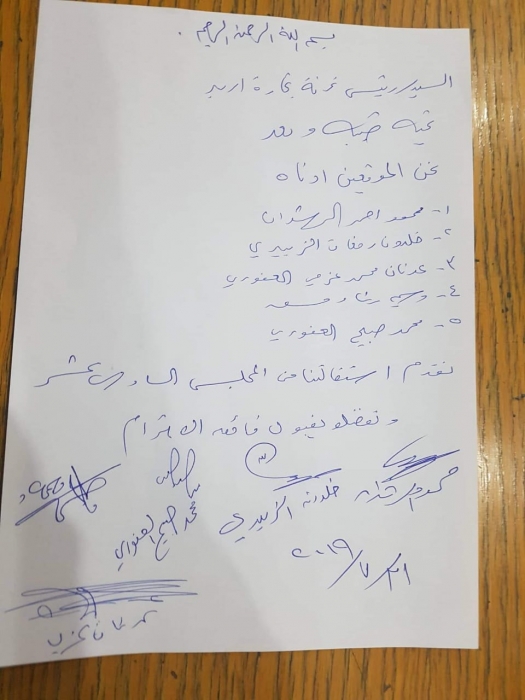 بسم الله الرحمن الرحيم
السيد رئيس غرفة تجارة اربد
تحية طيبة وبعد
نحن الموقعين ادناه
١- محمود احمد الرشدان
٢- خلدون رفعات الزبيدي
٣- عدنان محمد عزمي العفوري
٤-
٥- محمد صبحي العفوري
نقدم استقالتنا من المجلس السادس عشر
وتفضلو بقبول فائق الاحترام
خلدون الزبيدي
محمد صبحي العفوري
٢٠١٩/٧/٣١